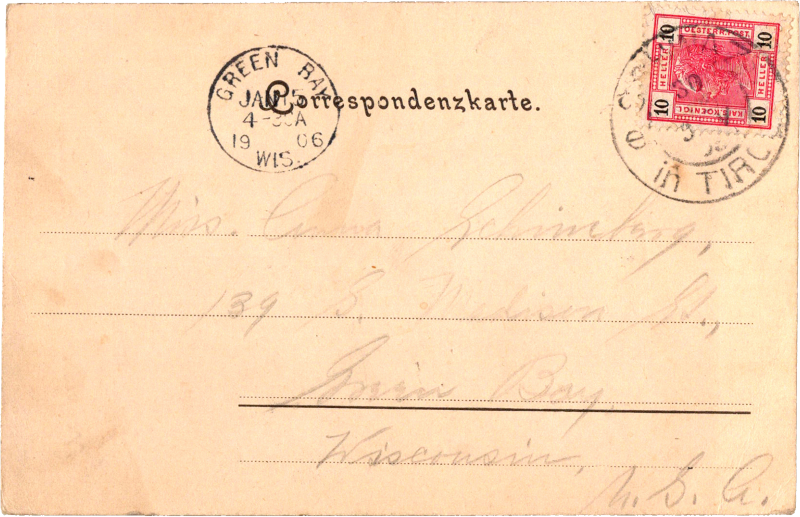 GREEN BAY
JAN 5
4-30A
19 06
WIS.
Correspondenzkarte.
10 OESTERR. POST. 10
HELLER HELLER
10 KAIS. KOENIGL. 10
in TIROL
Miss. Anna
139 S. Madison St.,
Green Bay,
Wisconsin,
U. S. A.